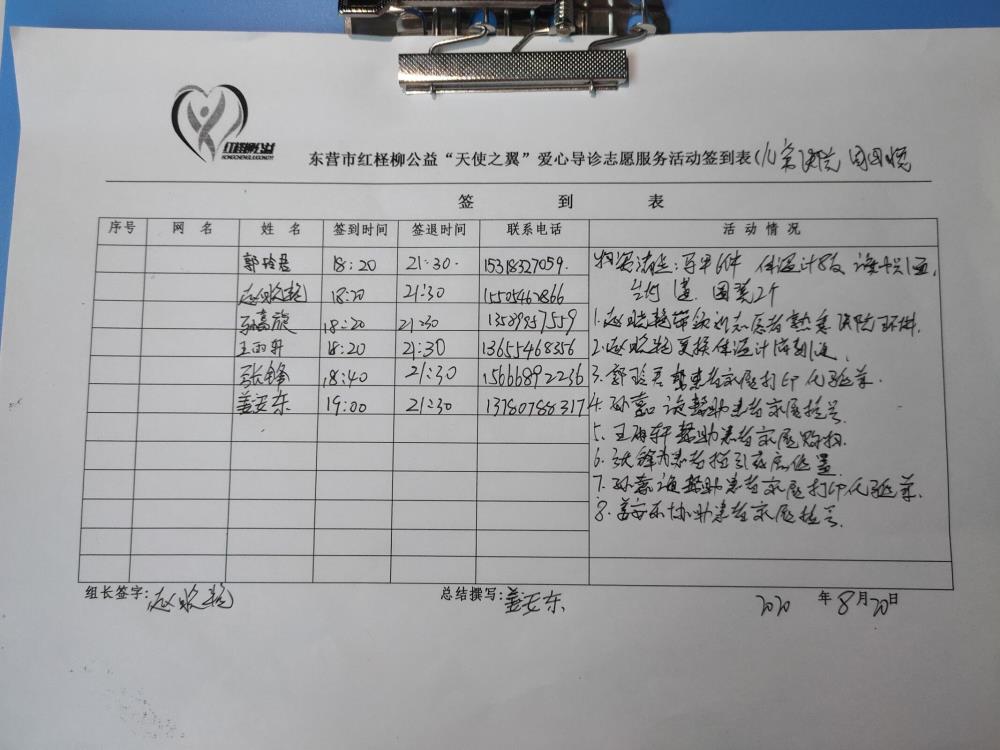 红柽柳公益
HONGCHENGLIUGONGYI
东营市红柽柳公益“天使之翼”爱心导诊志愿服务活动签到表(儿童医院
签 到 表
序号 网 名 姓 名 签到时间 签退时间 联系电话 活 动 情 况
郭玲君 18:20 21:30. 15318327059.
赵晓艳 18:20 21:30 15505462866
孙嘉旋 18:20 21:30 13589957559
王雨轩 18:20 21:30 13655468356
张锋 18:40 21:30 15666892236
姜安东 19:00 21:30 13780788317
物资清点:马甲6件 体温计8支
1.赵晓艳带领新志愿者熟悉医院环境.
2.赵晓艳更换体温计
3.郭玲君帮患者家属打印化验单.
4.孙嘉旋帮助患者家属挂号
5.王雨轩帮助患者家属
6.张锋为患者指引夜店位置
7.孙嘉旋帮助患者家属打印化验单.
8.姜安东协助患者家属挂号.
组长签字:赵晓艳 总结撰写:姜安东 2020 年8月20日